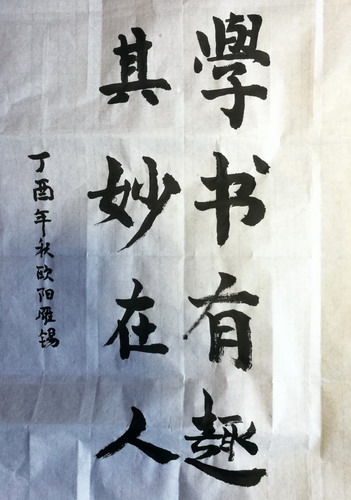 學书有趣
其妙在人
丁酉年秋欧阳雁锡